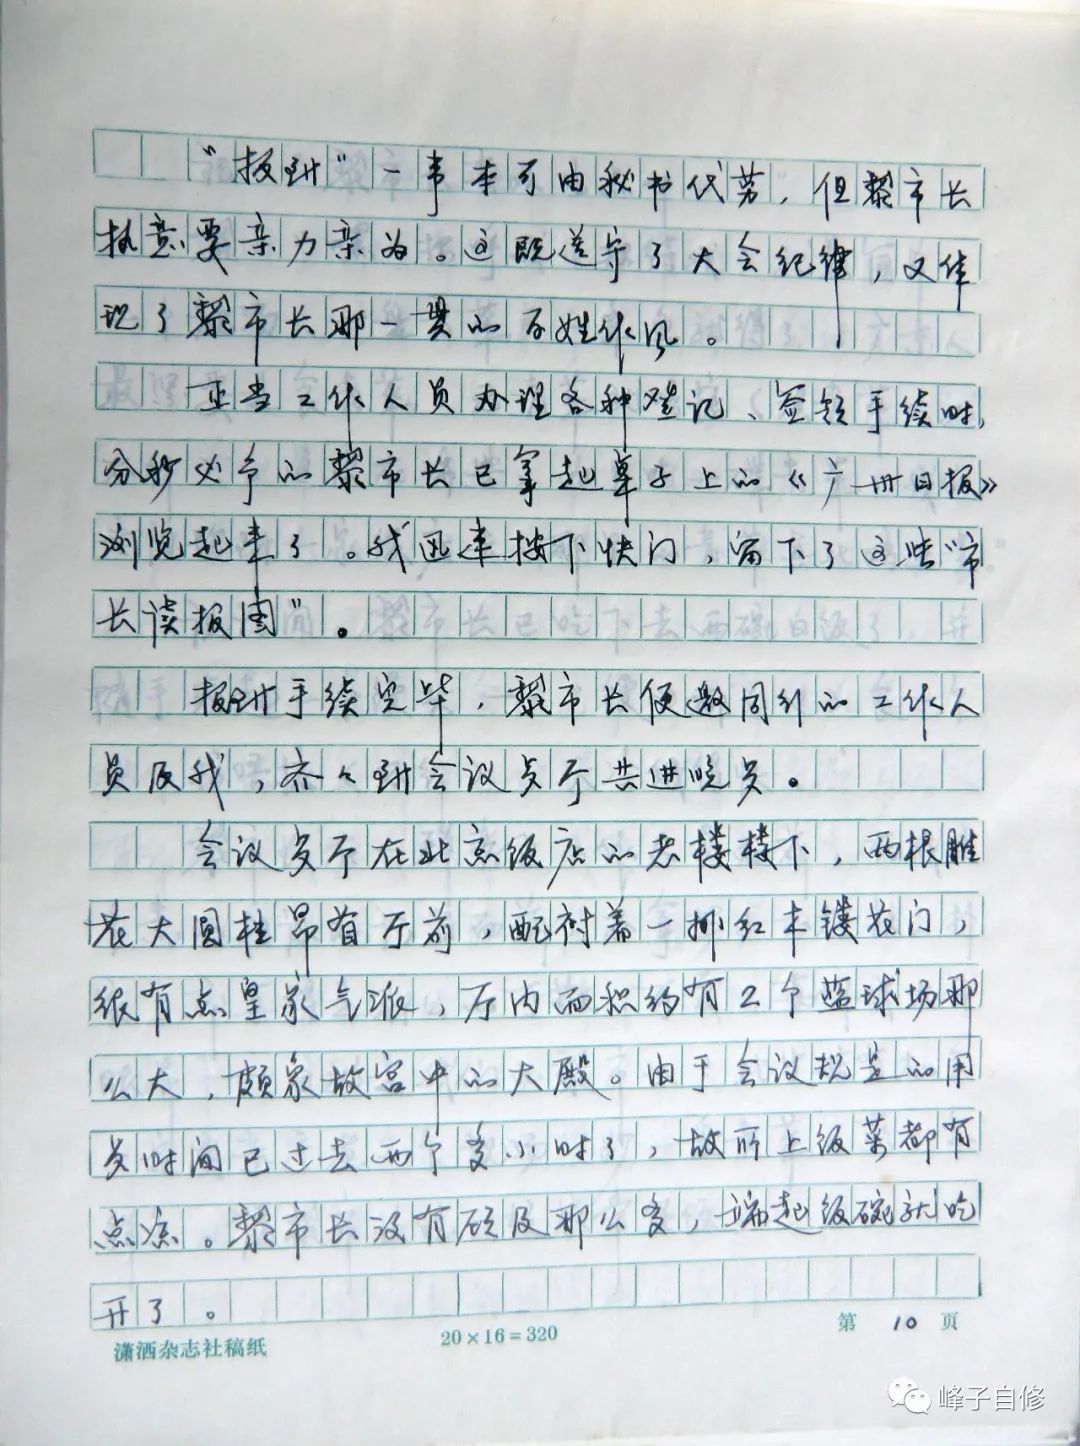 “报到”一事本可由秘书代劳，但黎市长
执意要亲力亲为。这既遵守了大会纪律，又体
现了黎市长那一贯的百姓作风。
正当工作人员办理各种登记、签领手续时，
分秒必争的黎市长已拿起桌子上的《广州日报》
浏览起来了。我迅速按下快门，留下了这些“市
长读报图”。
报到手续完毕，黎市长便邀同行的工作人
员及我，齐々到会议餐厅共进晚餐。
会议餐厅在北京饭店的老楼楼下，两根雕
花大圆柱昂首厅前，配衬着一排红木镂花门，
很有点皇家气派，厅内面积约有2个蓝球场那
么大，颇象故宫中的大殿。由于会议规定的用
餐时间已过去两个多小时了，故所上饭菜都有
点凉。黎市长没有顾及那么多，端起饭碗就吃
开了。
潇洒杂志社稿纸
20×16=320
第 10 页
峰子自修